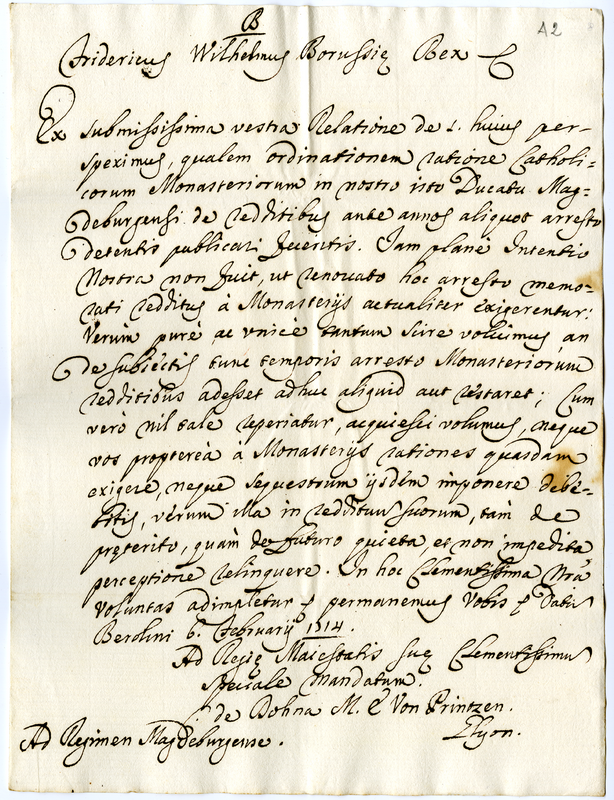 B
A2
Fridericus Wilhelmus Borussię Rex
Ex submississima vestra Relatione de 2. huius per-
speximus, qualem ordinationem ratione Catholi-
corum Monasteriorum in nostro isto Ducatu Mag-
deburgensi de redditibus ante annos aliquot arresto
detentis publicari feceritis. Iam planè Intentio
Nostra non fuit, ut renovato hoc arresto memo-
rati redditus à Monasterijs actualiter exigerentur:
Verùm purè ac vnicè tantum scire voluimus an
de subiectis tunc temporis arresto Monasteriorum
redditibus adesset adhuc aliquid aut restaret; Cum
verò nil tale reperiatur, acquiesci volumus, neque
vos propterea à Monasterijs rationes quasdam
exigere, neque sequestrum ijsdem imponere debe-
bitis, verum illa in redditum suorum, tàm de
pręterito, quàm de futuro quieta, et non impedita
perceptione relinquere. In hoc Clementissima Nrã
voluntas adimpletur et permanemus Vobis Datum
Berolini 6. Februarij 1714.
Ad Regię Maiestatis suę Clementissimum
speciale mandatum.
de Dohna M. Von Printzen.
Ad Regimen Magdeburgense.